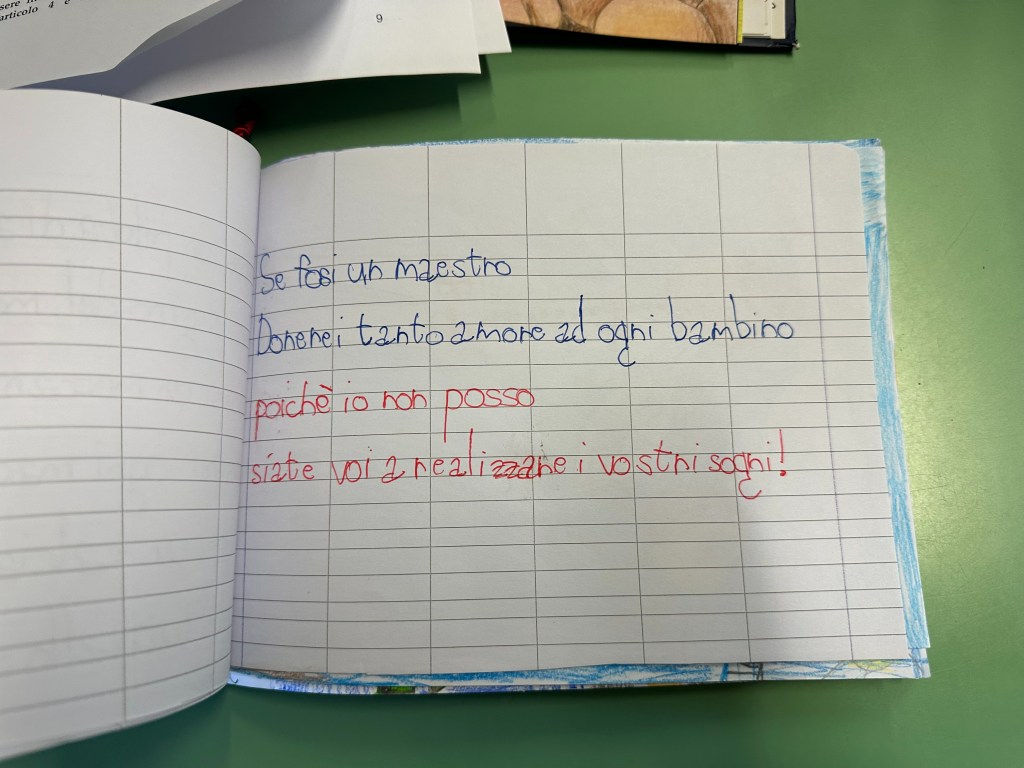 sere in
articolo 4 e
9
Se fosi un maestro
Donerei tanto amore ad ogni bambino
poichè io non posso
siate voi a realizzare i vostri sogni!